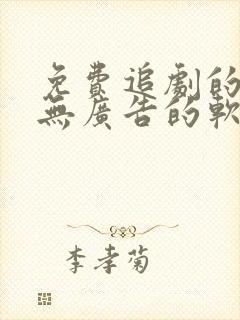 免費追劇的
無廣告的軟
李孝菊